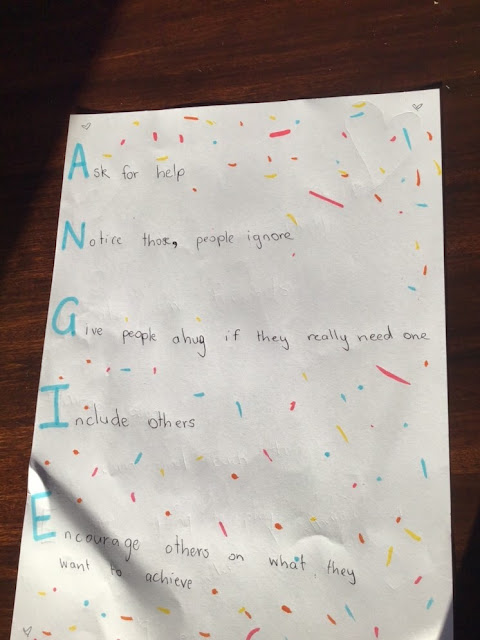 Ask for help
Notice those, people ignore
Give people a hug if they really need one
Include others
Encourage others on what they
want to achieve